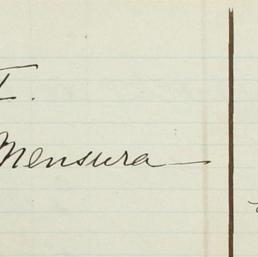 I.
Mensura—